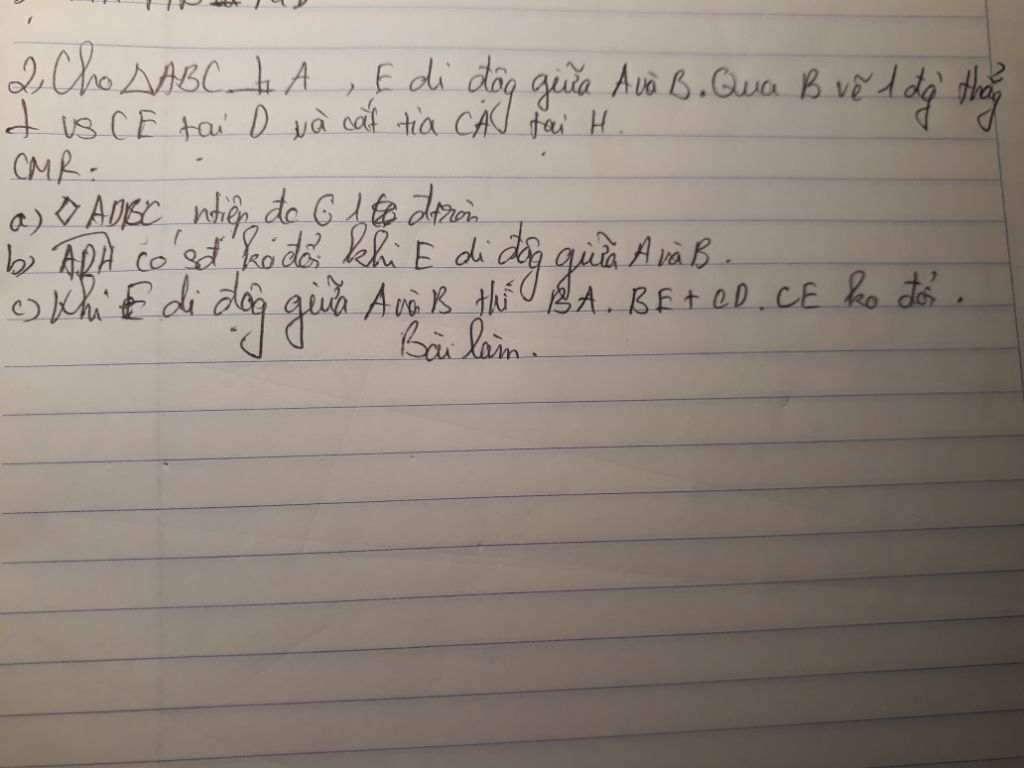 2, Cho △ABC ⊥ A , E di độg giữa A và B. Qua B vẽ 1 đg thẳg
⊥ vs CE tại D và cắt tia CA tại H.
CMR:
a) ◇ ADBC ntiếp đc 1 đtròn
b) ADH có sđ ko đổi khi E di độg giữa A và B.
c) Khi E di độg giữa A và B thì BA. BE + CD. CE ko đổi.
Bài làm.